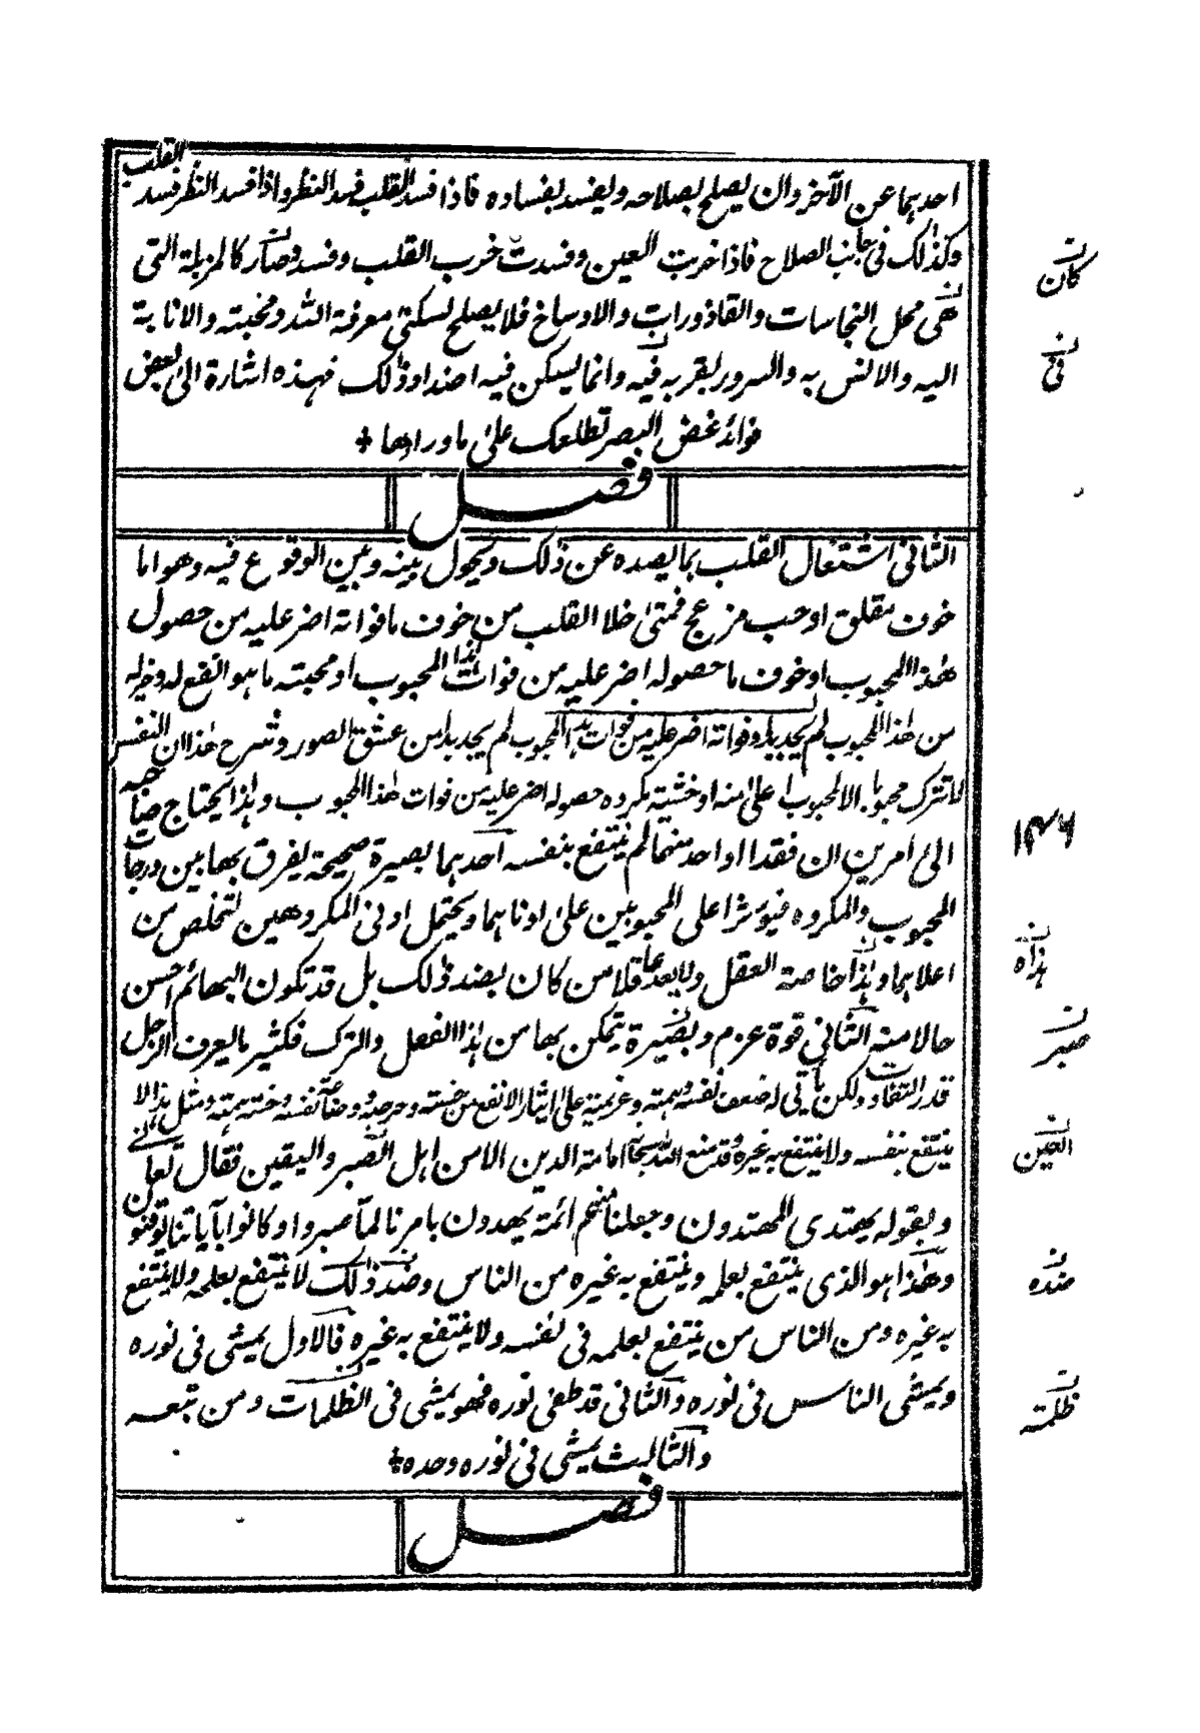 احدہما عن الآخر وان یصلح بصلاحہ ویفسد بفسادہ فاذا فسد القلب فسد النظر واذا فسد النظر فسد القلب
وکذلک فی جانب الصلاح فاذا خربت العین وفسدت خرب القلب وفسد وصار کالمزبلة التی
ھی محل النجاسات والقاذورات والاوساخ فلا یصلح لسکنی معرفة اللہ ومحبتہ والانابة
الیہ والانس بہ والسرور بقربہ فیہ وانما یسکن فیہ اضداد ذلک فہذہ اشارة الی بعض
فوائد غض البصر تطلعک علی ما وراءھا
فصل
الثانی اشتغال القلب بما یصدہ عن ذلک ویحول بینہ وبین الوقوع فیہ وھو اما
خوف مقلق او حب مزعج فمتی خلا القلب من خوف ما فواتہ اضر علیہ من حصول
ھذا المحبوب او خوف ما حصولہ اضر علیہ من فوات ھذا المحبوب او محبتہ ما ہو انفع لہ وخیر لہ
من ھذا المحبوب لم یجد بدا وفواتہ اضر علیہ من فوات ہذا المحبوب لم یجد بدا من عشق الصور وشرح ھذا ان النفس
لا تترک محبوبا الا لمحبوب اعلی منہ او خشیتہ مکروہ حصولہ اضر علیہ من فوات ھذا المحبوب وہذا یحتاج صاحبہ
الی امرین ان فقدا او احد منھما لم ینتفع بنفسہ احدہما بصیرة صحیحة یفرق بھا بین درجات
المحبوب والمکروہ فیوثر اعلی المحبوبین علی ادناہما ویحتمل ادنی المکروھین لتخلص من
اعلاہما وہذا خاصة العقل ولا یعد عاقلا من کان بضد ذلک بل قد تکون البھائم احسن
حالا منہ الثانی قوة عزم وبصیرة یتمکن بھا من ہذا الفعل والترک فکثیر ما یعرف الرجل
قدر التفاوت ولکن یابی لہ ضعف نفسہ وہمتہ وعزیمتہ علی ایثار الانفع من خستہ وحرصہ ووضاعة نفسہ وخستہ ہمتہ ومثل ہذا لا
ینتفع بنفسہ ولا ینتفع بہ غیرہ وقد منع اللہ سبحانہ امامة الدین الا من اہل الصبر والیقین فقال تعالی
وبقولہ یھتدی المھتدون وجعلنا منھم ائمة یھدون بامرنا لما صبروا وکانوا بآیاتنا یوقنون
وھذا ہو الذی ینتفع بعلمہ وینتفع بہ غیرہ من الناس وضد ذلک لا ینتفع بعلمہ ولا ینتفع
بہ غیرہ ومن الناس من ینتفع بعلمہ فی نفسہ ولا ینتفع بہ غیرہ فالاول یمشی فی نورہ
ویمشی الناس فی نورہ والثانی قد طفی نورہ فھو یمشی فی الظلمات ومن تبعہ
والثالث یمشی فی نورہ وحدہ
فصل
کان
فی
۱۴۶
ہذاہ
صبر
العین
ضدہ
ظلمتہ